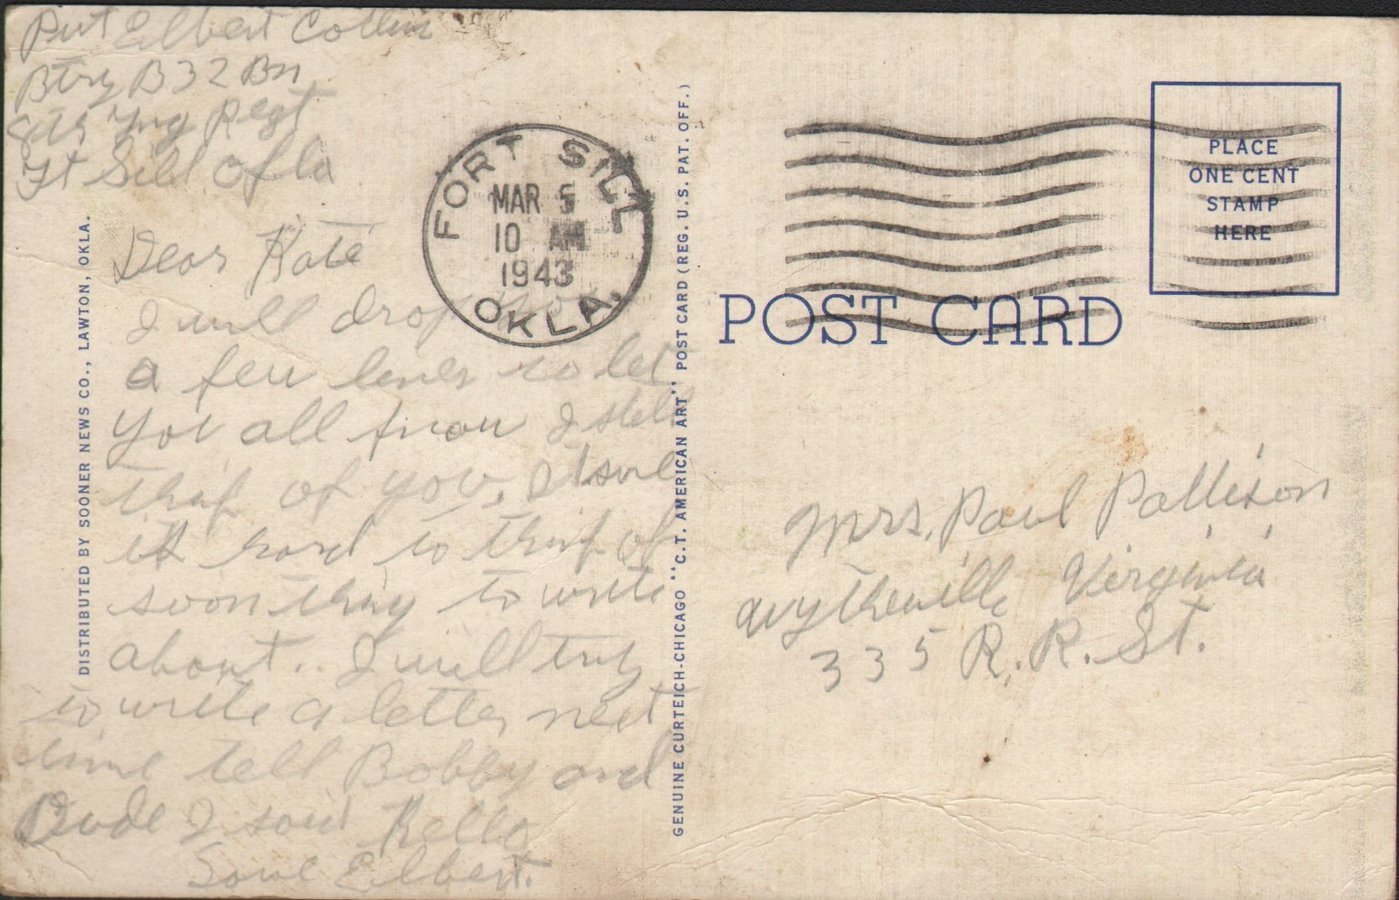 Pvt Elbert Collins
Btry B 32 Bn
6th Tng Regt
Ft Sill Okla
Dear Kate
I will drop you
a few lines to let
you all know I still
think of you, I
it hard to think of
soomthing to write
about. I will try
to write a letter next
time tell Bobby and
I said Hello
Love Elbert.
DISTRIBUTED BY SOONER NEWS CO., LAWTON, OKLA.
FORT SILL
MAR 5
10 AM
1943
OKLA.
GENUINE CURTEICH-CHICAGO "C.T. AMERICAN ART" POST CARD (REG. U.S. PAT. OFF.)
POST CARD
PLACE
ONE CENT
STAMP
HERE
Mrs. Paul Pattison
Wytheville Virginia
335 R. R. St.